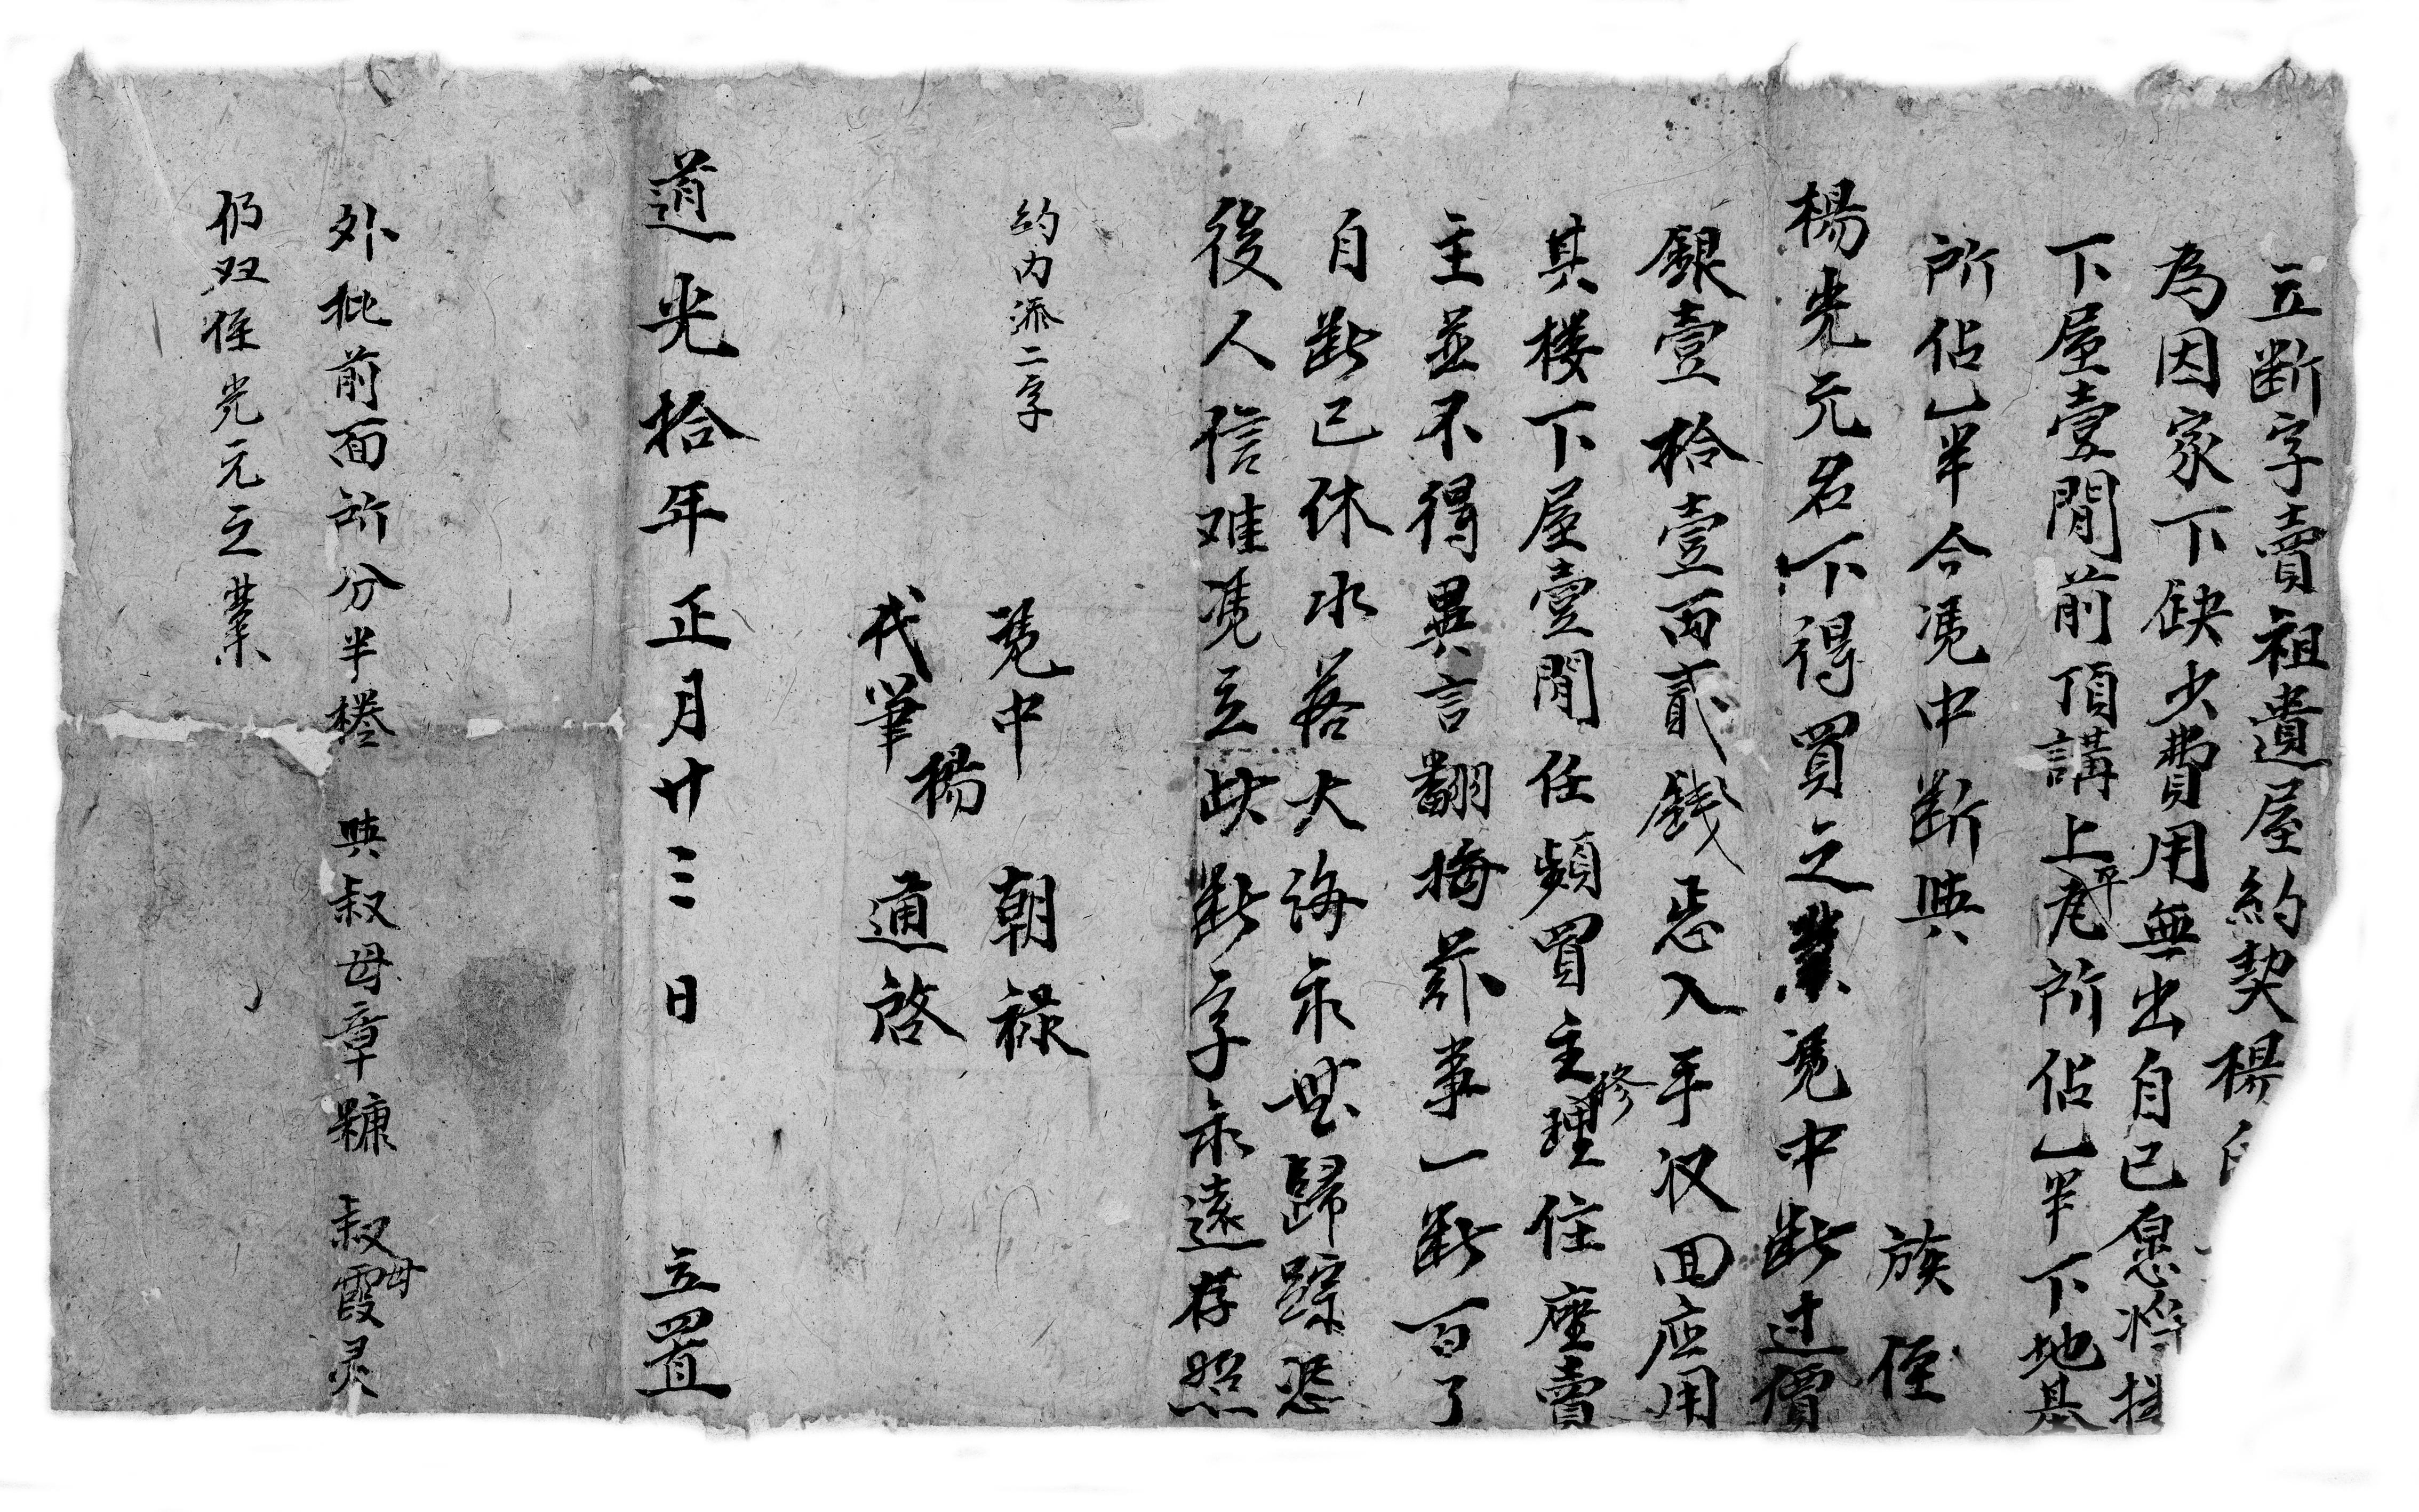 立断字賣祖遺屋約契楊
為因家下缺少費用無出自己愿將
下屋壹間前頂講上平瓦所佔乙半下地基
所佔乙半今凴中断與
族侄
楊光元名下得買之業凴中断过價
銀壹拾壹両貳錢乙入手収回应用
其楼下屋壹間任頻買主修理住座賣
主並不得異言翻悔茶事一断百了
自断已休水落大海永無歸踪恐
後人信难凴立此断字永遠存照
約内添二字
凴中 朝禄
楊
代筆 通啓
道光拾年正月廿三日 立置
外批前面所分半楼 與叔母章糠 叔母霞灵
仍双侄光元之業